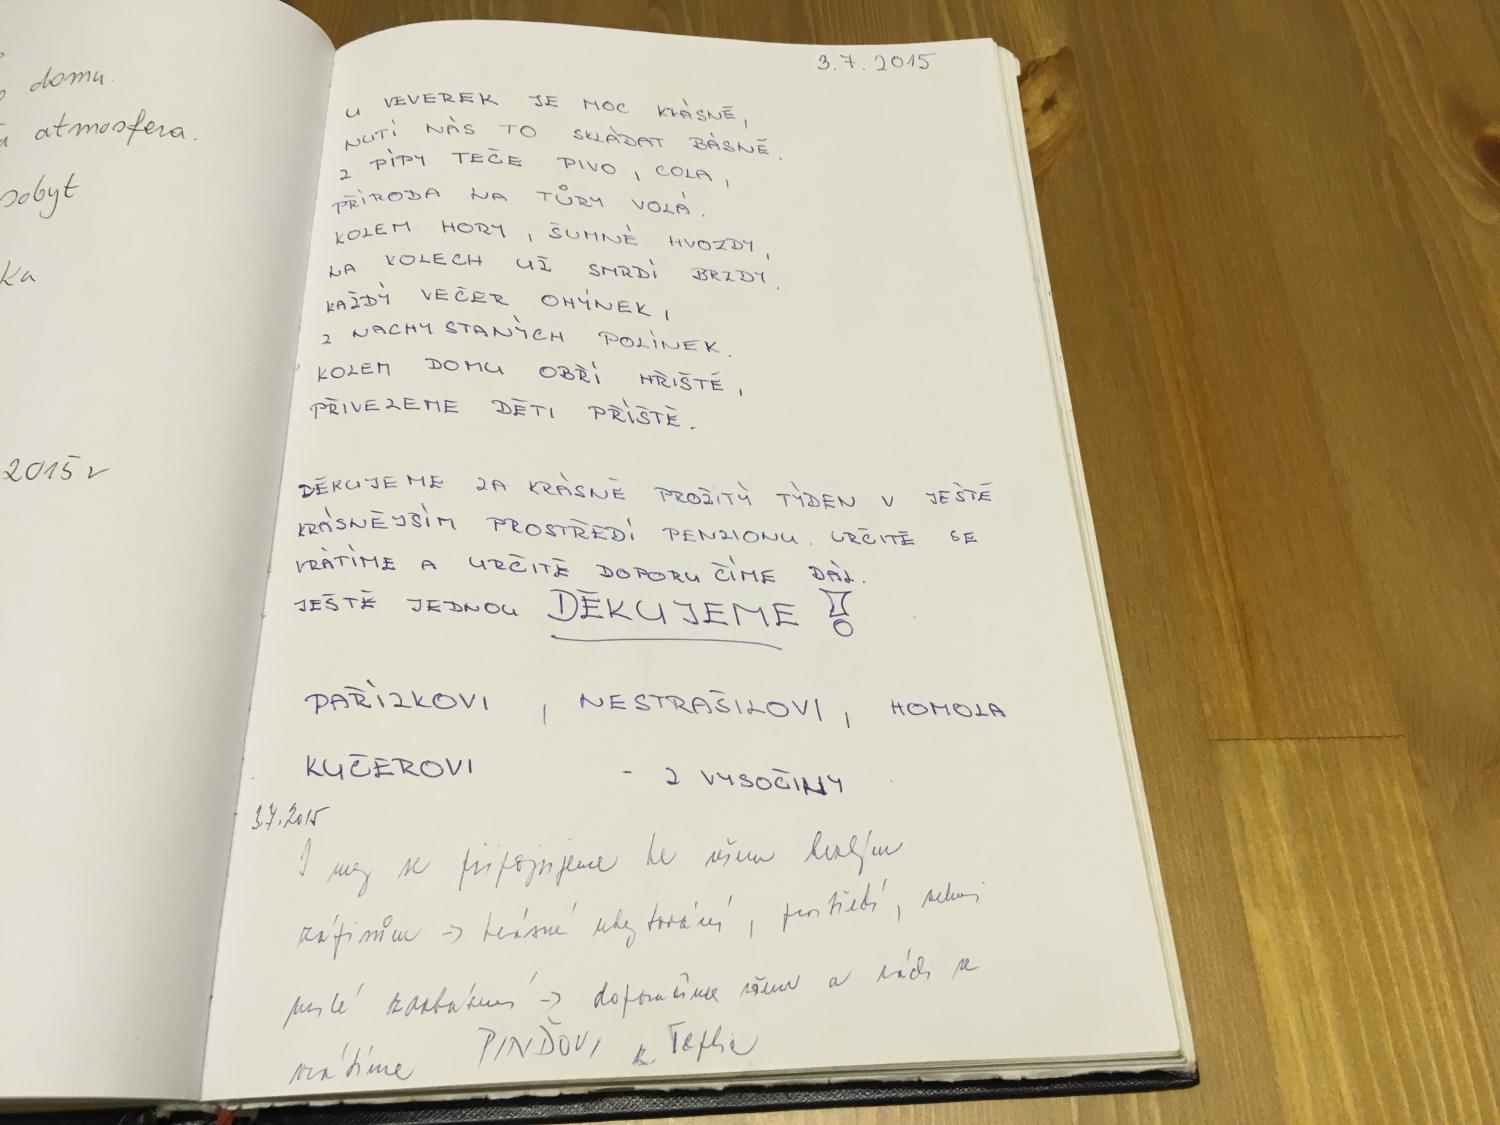 domu.
atmosfera.
pobyt
ka
2015 v
3.7.2015
U VEVEREK JE MOC KRÁSNĚ,
NUTÍ NÁS TO SKLÁDAT BÁSNĚ.
Z PÍPY TEČE PIVO, COLA,
PŘÍRODA NA TŮRY VOLÁ.
KOLEM HORY, ŠUMNÉ HVOZDY,
NA KOLECH UŽ SMRDÍ BRZDY.
KAŽDÝ VEČER OHÝNEK,
Z NACHYSTANÝCH POLÍNEK.
KOLEM DOMU OBŘÍ HŘIŠTĚ,
PŘIVEZEME DĚTI PŘÍŠTĚ.
DĚKUJEME ZA KRÁSNĚ PROŽITÝ TÝDEN V JEŠTĚ
KRÁSNĚJŠÍM PROSTŘEDÍ PENZIONU. URČITĚ SE
VRÁTÍME A URČITĚ DOPORUČÍME DÁL.
JEŠTĚ JEDNOU DĚKUJEME!
PAŘÍZKOVI, NESTRAŠILOVI, HOMOLA
KUČEROVI - Z VYSOČINY
3.7.2015
I my se připojujeme ke všem hezkým
zápisům -> krásné ubytování, prostředí, velmi
milé -> doporučíme všem a rádi se
vrátíme PINĎOVI z